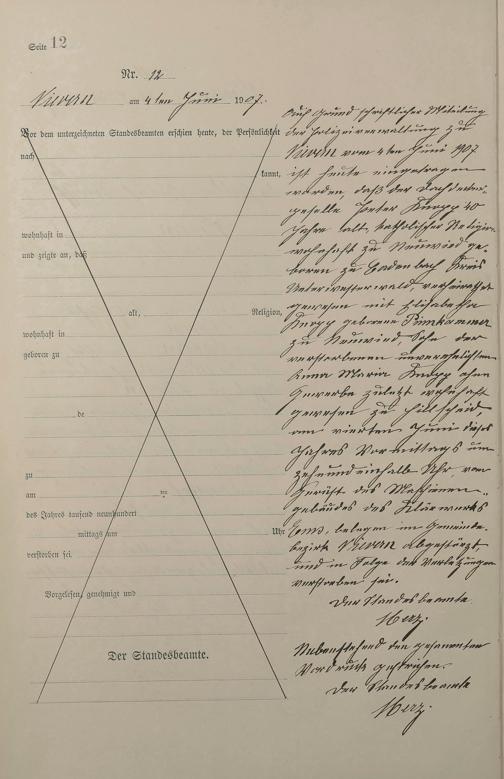 Seite 12
Nr. 12
Nievern am 4ten Juni 1907.
Vor dem unterzeichneten Standesbeamten erschien heute, der Persönlichkeit
nach
kannt,
wohnhaft in
und zeigte an, daß
alt, Religion,
wohnhaft in
geboren zu
de
zu
am
des Jahres tausend neunhundert
mittags um Uhr
verstorben sei.
Vorgelesen, genehmigt und
Der Standesbeamte.
Auf Grund schriftlicher Mitteilung
der Polizeiverwaltung zu
Nievern vom 4ten Juni 1907
ist heute eingetragen
worden, daß der Dachdecker-
geselle Peter Knopp 40
Jahre alt, katholischer Religion
wohnhaft zu Neuwied ge-
boren zu Cadenbach Kreis
Unterwesterwald, verheiratet
gewesen mit Elisabetha
Knopp geborene
zu Neuwied, Sohn der
verstorbenen unverehelichten
Anna Maria Knopp ohne
Gewerbe zuletzt wohnhaft
gewesen zu Hillscheid,
am vierten Juni dieses
Jahres Vormittags um
zehnundeinhalb Uhr, vom
Gerüst des Maschinen-
gebäudes des Klärwerks
Ems, belegen im Gemeinde-
bezirk Nievern abgestürzt,
und in Folge der Verletzungen
verstorben sei.
Der Standesbeamte
Merz.
Nebenstehend den gesammten
Vordruck gestrichen.
Der Standesbeamte
Merz.